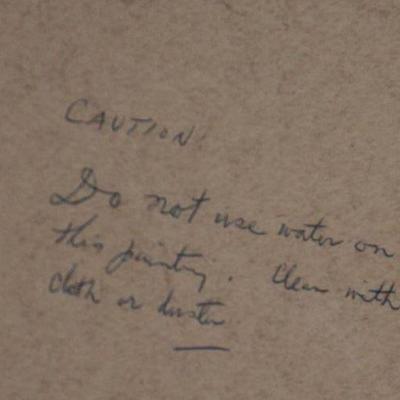 CAUTION!
Do not use water on
this painting. Clean with
cloth or duster